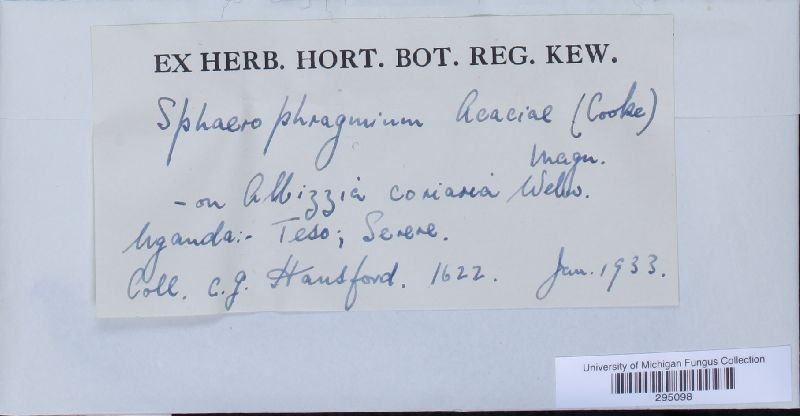 EX HERB. HORT. BOT. REG. KEW.
Sphaerophragmium Acaciae (Cooke)
Magn.
- on Albizzia coriaria Welw.
Uganda:- Teso; Serere.
Coll. C.G. Hansford. 1622. Jan. 1933.
University of Michigan Fungus Collection
295098